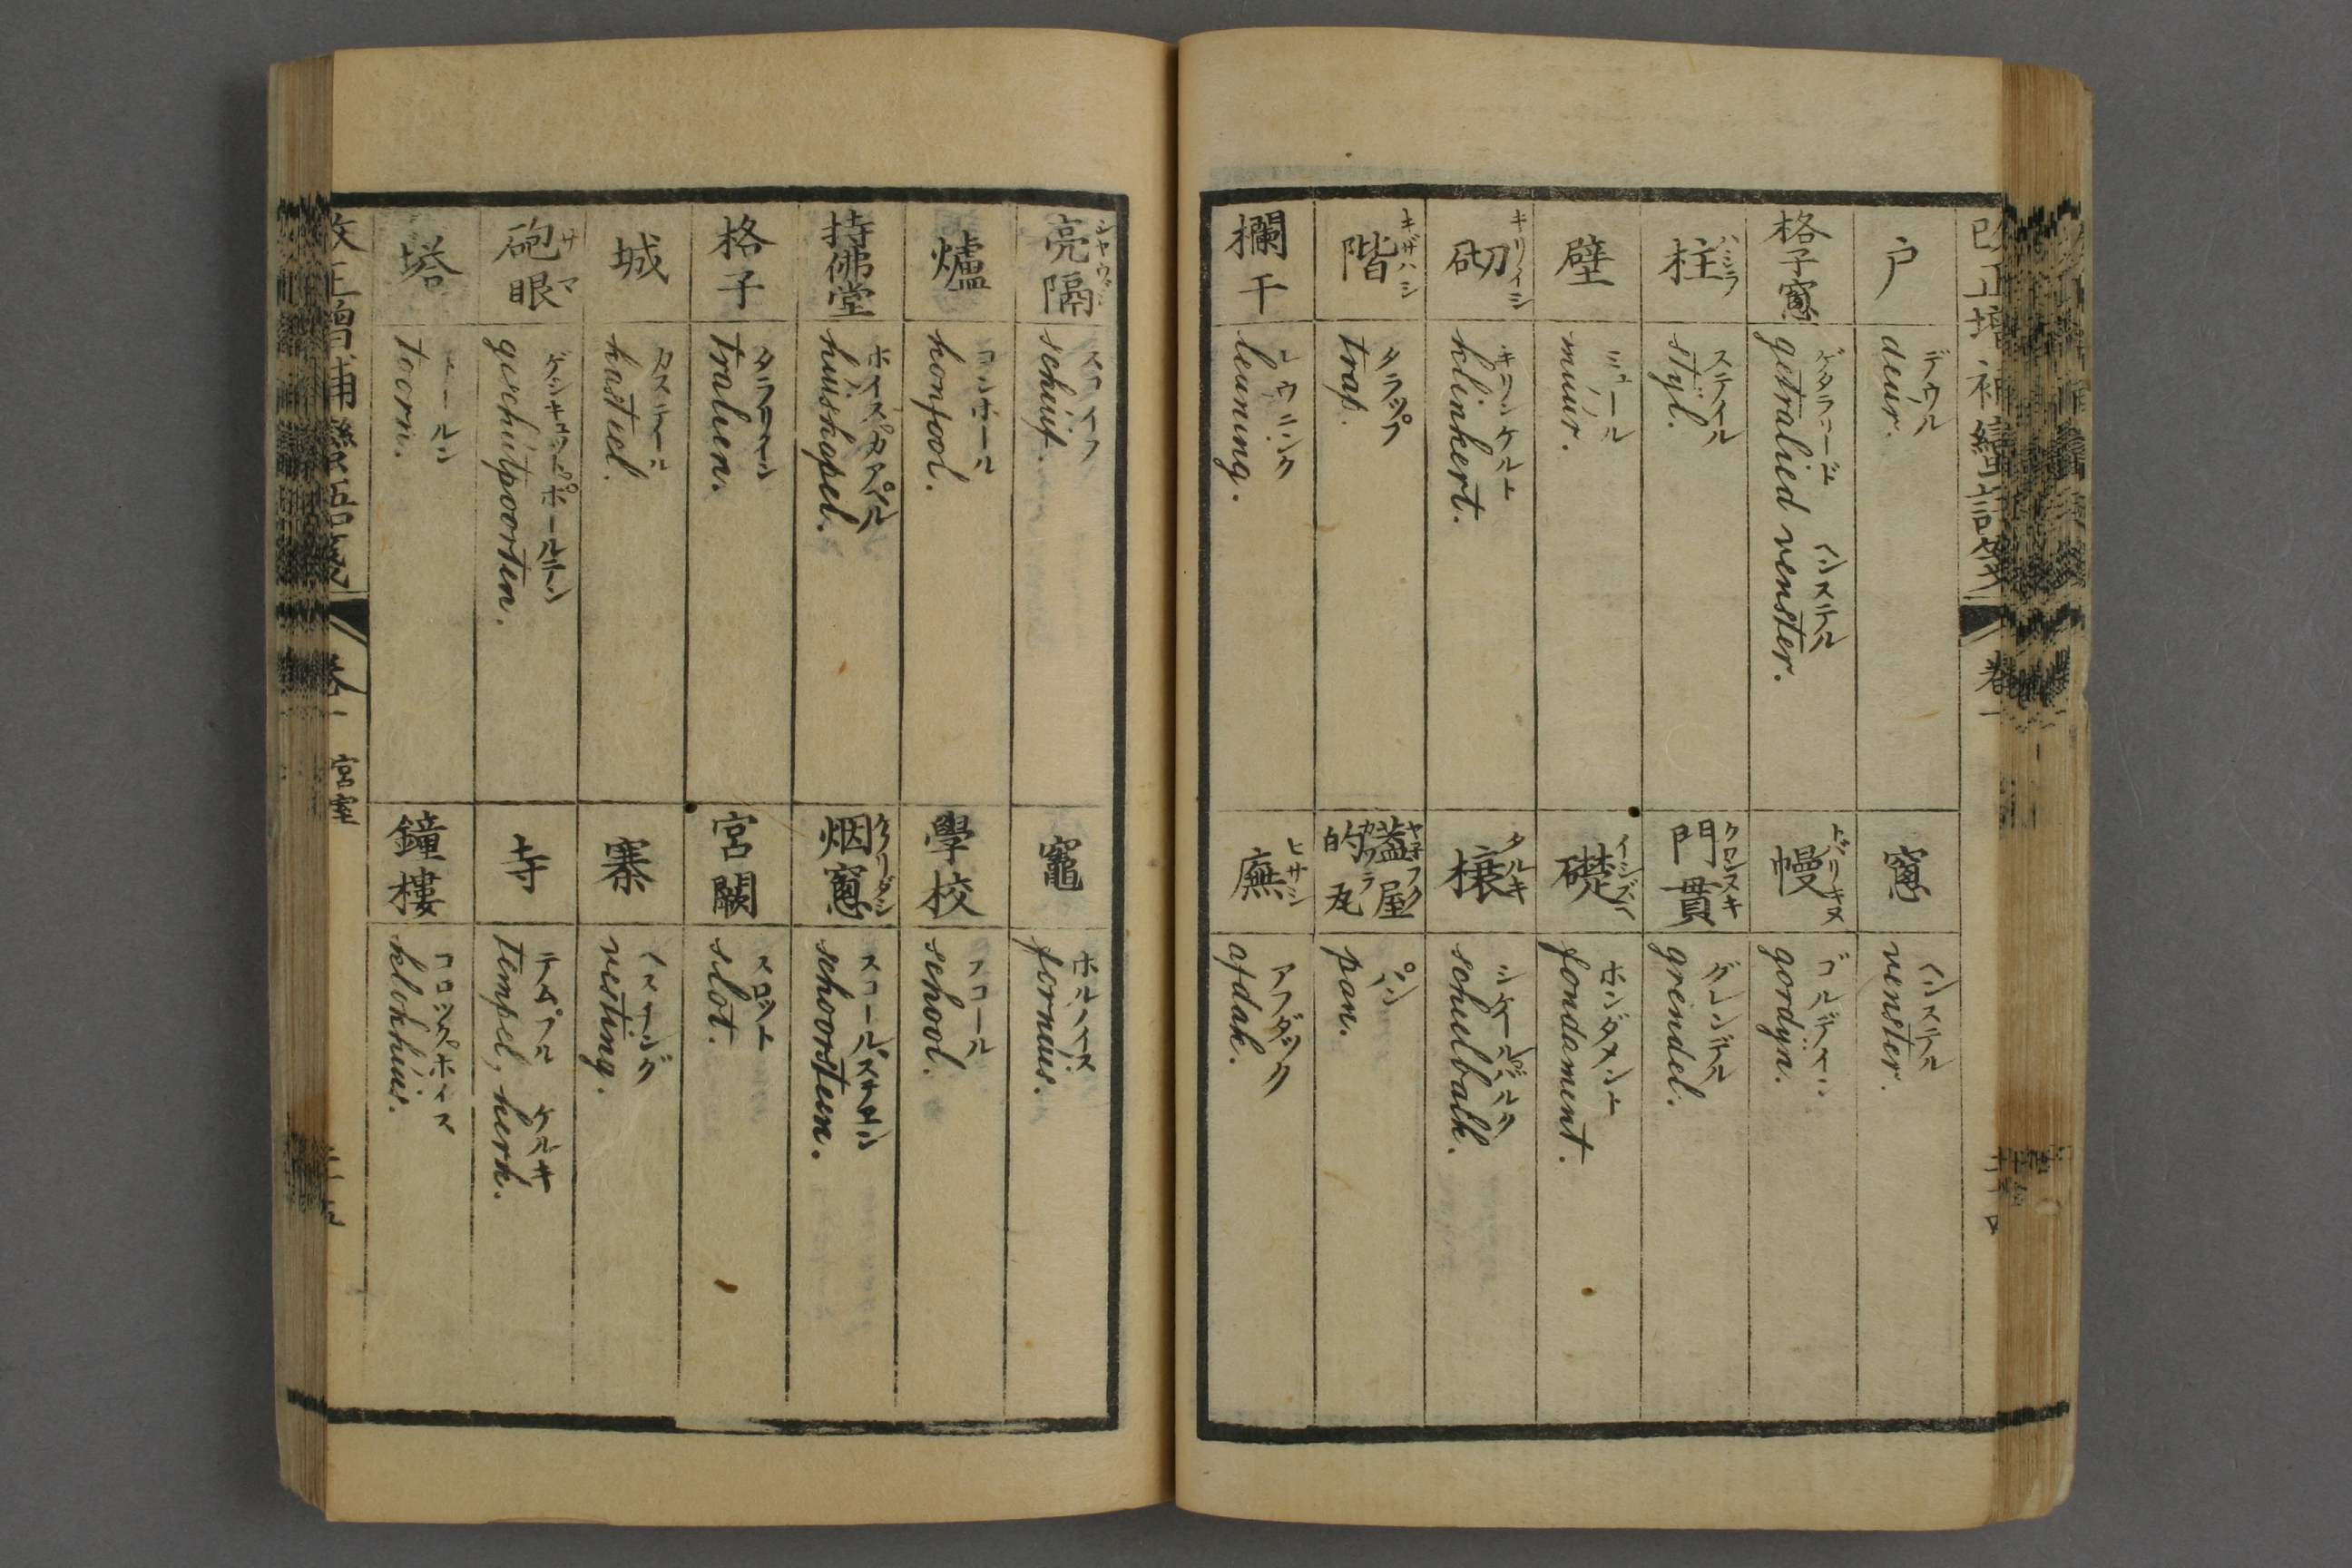 改正增補蠻語箋
卷一
戸
デウル
deur.
窻
ヘンステル
venster.
格子窻
ゲタラリード ヘンステル
getralied venster.
幔 トバリキヌ
ゴルデイン
gordyn.
柱 ハシラ
ステイル
styl.
門貫 クワンヌキ
グレンデル
grendel.
壁
ミュール
muur.
礎 イシズヘ
ホンダメント
fondament.
砌 キリイシ
キリンケルト
klinkert.
榱 タルキ
シケールバルク
schulbalk.
階 キザハシ
タラップ
trap.
蓋屋的瓦 ヤ子フクカワラ
パン
pan.
欄干
レウニンク
leuning.
廡 ヒサシ
アフダック
afdak.
亮隔 シャウジ
スコイフ
schuif.
竈
ホルノイス
fornuis.
爐
コンホール
konfool.
學校
スコール
school.
持佛堂
ホイスカアペル
huiskapel.
烟窻 ケムリダシ
スコールステーン
schoorsteen.
格子
タラリーン
tralien.
宮闕
スロット
slot.
城
カステール
kasteel.
寨
ヘスチング
vesting.
砲眼 サマ
ゲシキュットポールテン
geschutpoorten.
寺
テムプル ケルキ
tempel, kerk.
塔
トールン
toorn.
鐘樓
コロックホイス
klokhuis.
改正增補蠻語箋
卷一 宮室